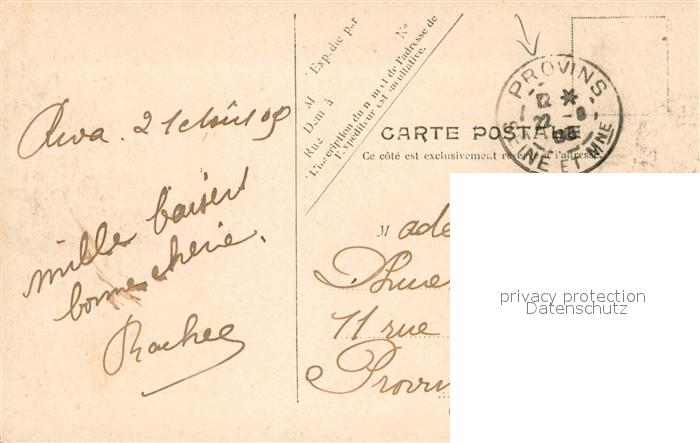 Expédié par
M
Dem t à
Rue
N°
L'inscription du nom et de l'adresse de
l'Expéditeur est facultative.
PROVINS
12 *
22 -8
09
SEINE ET MNE
CARTE POSTALE
Ce côté est exclusivement réservé à l'adresse.
21 août 09
mille baisers
bonne chérie.
Rachel
M ade
11 rue
Provin
privacy protection
Datenschutz